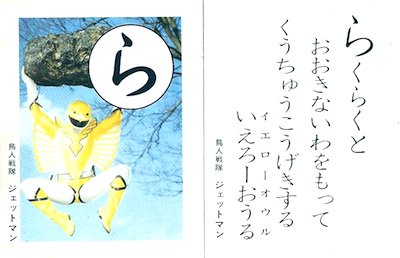 ら
鳥人戦隊 ジェットマン
らくらくと
おおきないわをもって
くうちゅうこうげきする
イエローオウル
いえろーおうる
鳥人戦隊 ジェットマン